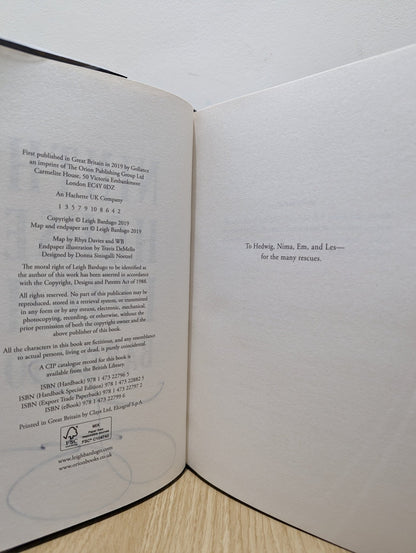 First published in Great Britain in 2019 by Gollancz
an imprint of The Orion Publishing Group Ltd
Carmelite House, 50 Victoria Embankment
London EC4Y 0DZ
An Hachette UK Company
1 3 5 7 9 10 8 6 4 2
Copyright © Leigh Bardugo 2019
Map and endpaper art © Leigh Bardugo 2019
Map by Rhys Davies and WB
Endpaper illustration by Travis DeMello
Designed by Donna Sinisgalli Noetzel
The moral right of Leigh Bardugo to be identified as
the author of this work has been asserted in accordance
with the Copyright, Designs and Patents Act of 1988.
All rights reserved. No part of this publication may be
reproduced, stored in a retrieval system, or transmitted
in any form or by any means, electronic, mechanical,
photocopying, recording, or otherwise, without the
prior permission of both the copyright owner and the
above publisher of this book.
All the characters in this book are fictitious, and any resemblance
to actual persons, living or dead, is purely coincidental.
A CIP catalogue record for this book is
available from the British Library.
ISBN (Hardback) 978 1 473 22796 5
ISBN (Hardback Special Edition) 978 1 473 22882 5
ISBN (Export Trade Paperback) 978 1 473 22797 2
ISBN (eBook) 978 1 473 22799 6
Printed in Great Britain by Clays Ltd, Elcograf S.p.A.
FSC
MIX
www.leighbardugo.com
www.orionbooks.co.uk
To Hedwig, Nima, Em, and Les—
for the many rescues.